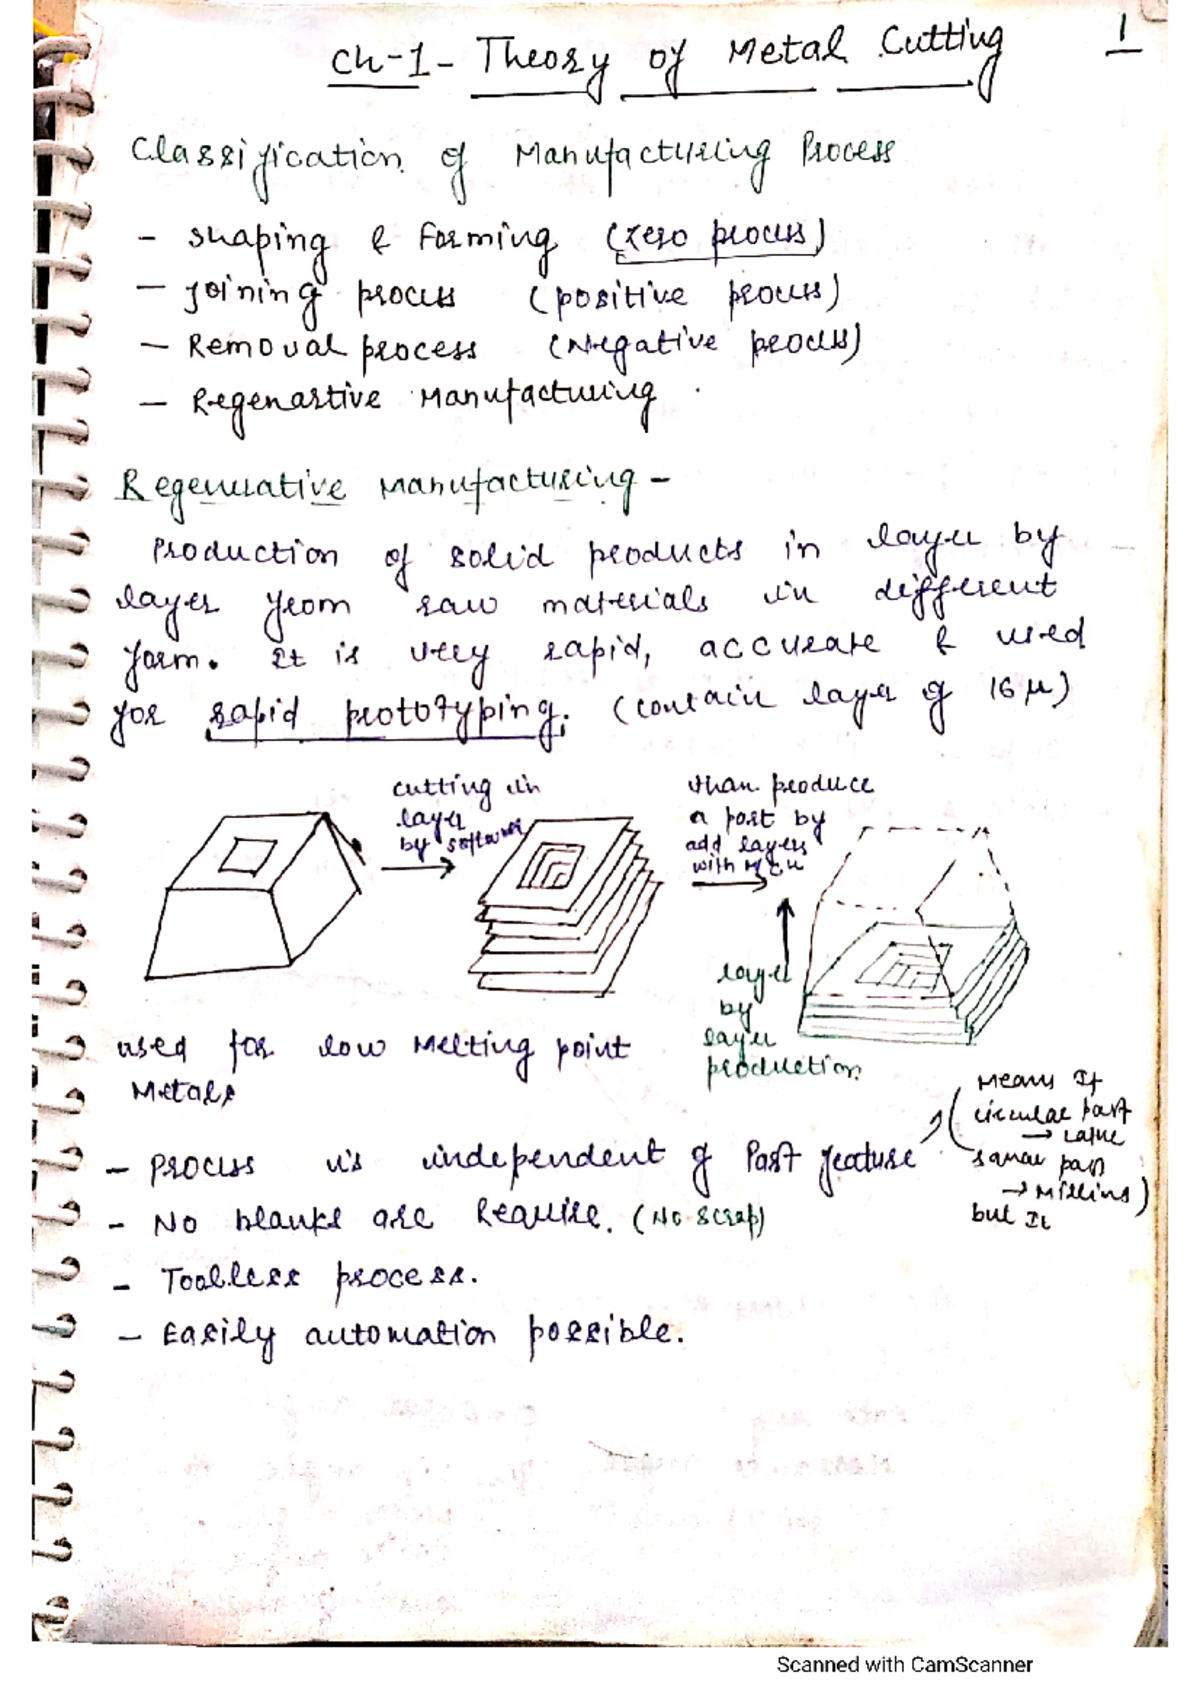 Ch-1- Theory of Metal Cutting
1
Classification of Manufacturing Process
- Shaping & Forming (zero process)
- Joining process (positive process)
- Removal process (Negative process)
- Regenartive Manufacturing
Regenerative Manufacturing -
Production of solid products in layer by
layer from raw materials in different
form. It is very rapid, accurate & used
for rapid prototyping. (contain layer of 16 μ)
cutting in
layer
by software
than produce
a part by
add layers
with
layer
by
layer
production
used for low Melting point
Metals
- Process is independent of Part feature
(Means If
circular part
→ Lathe
part
→ Milling)
but It
- No blanks are Require. (No scrap)
- Toolless process.
- Easily automation possible.
Scanned with CamScanner